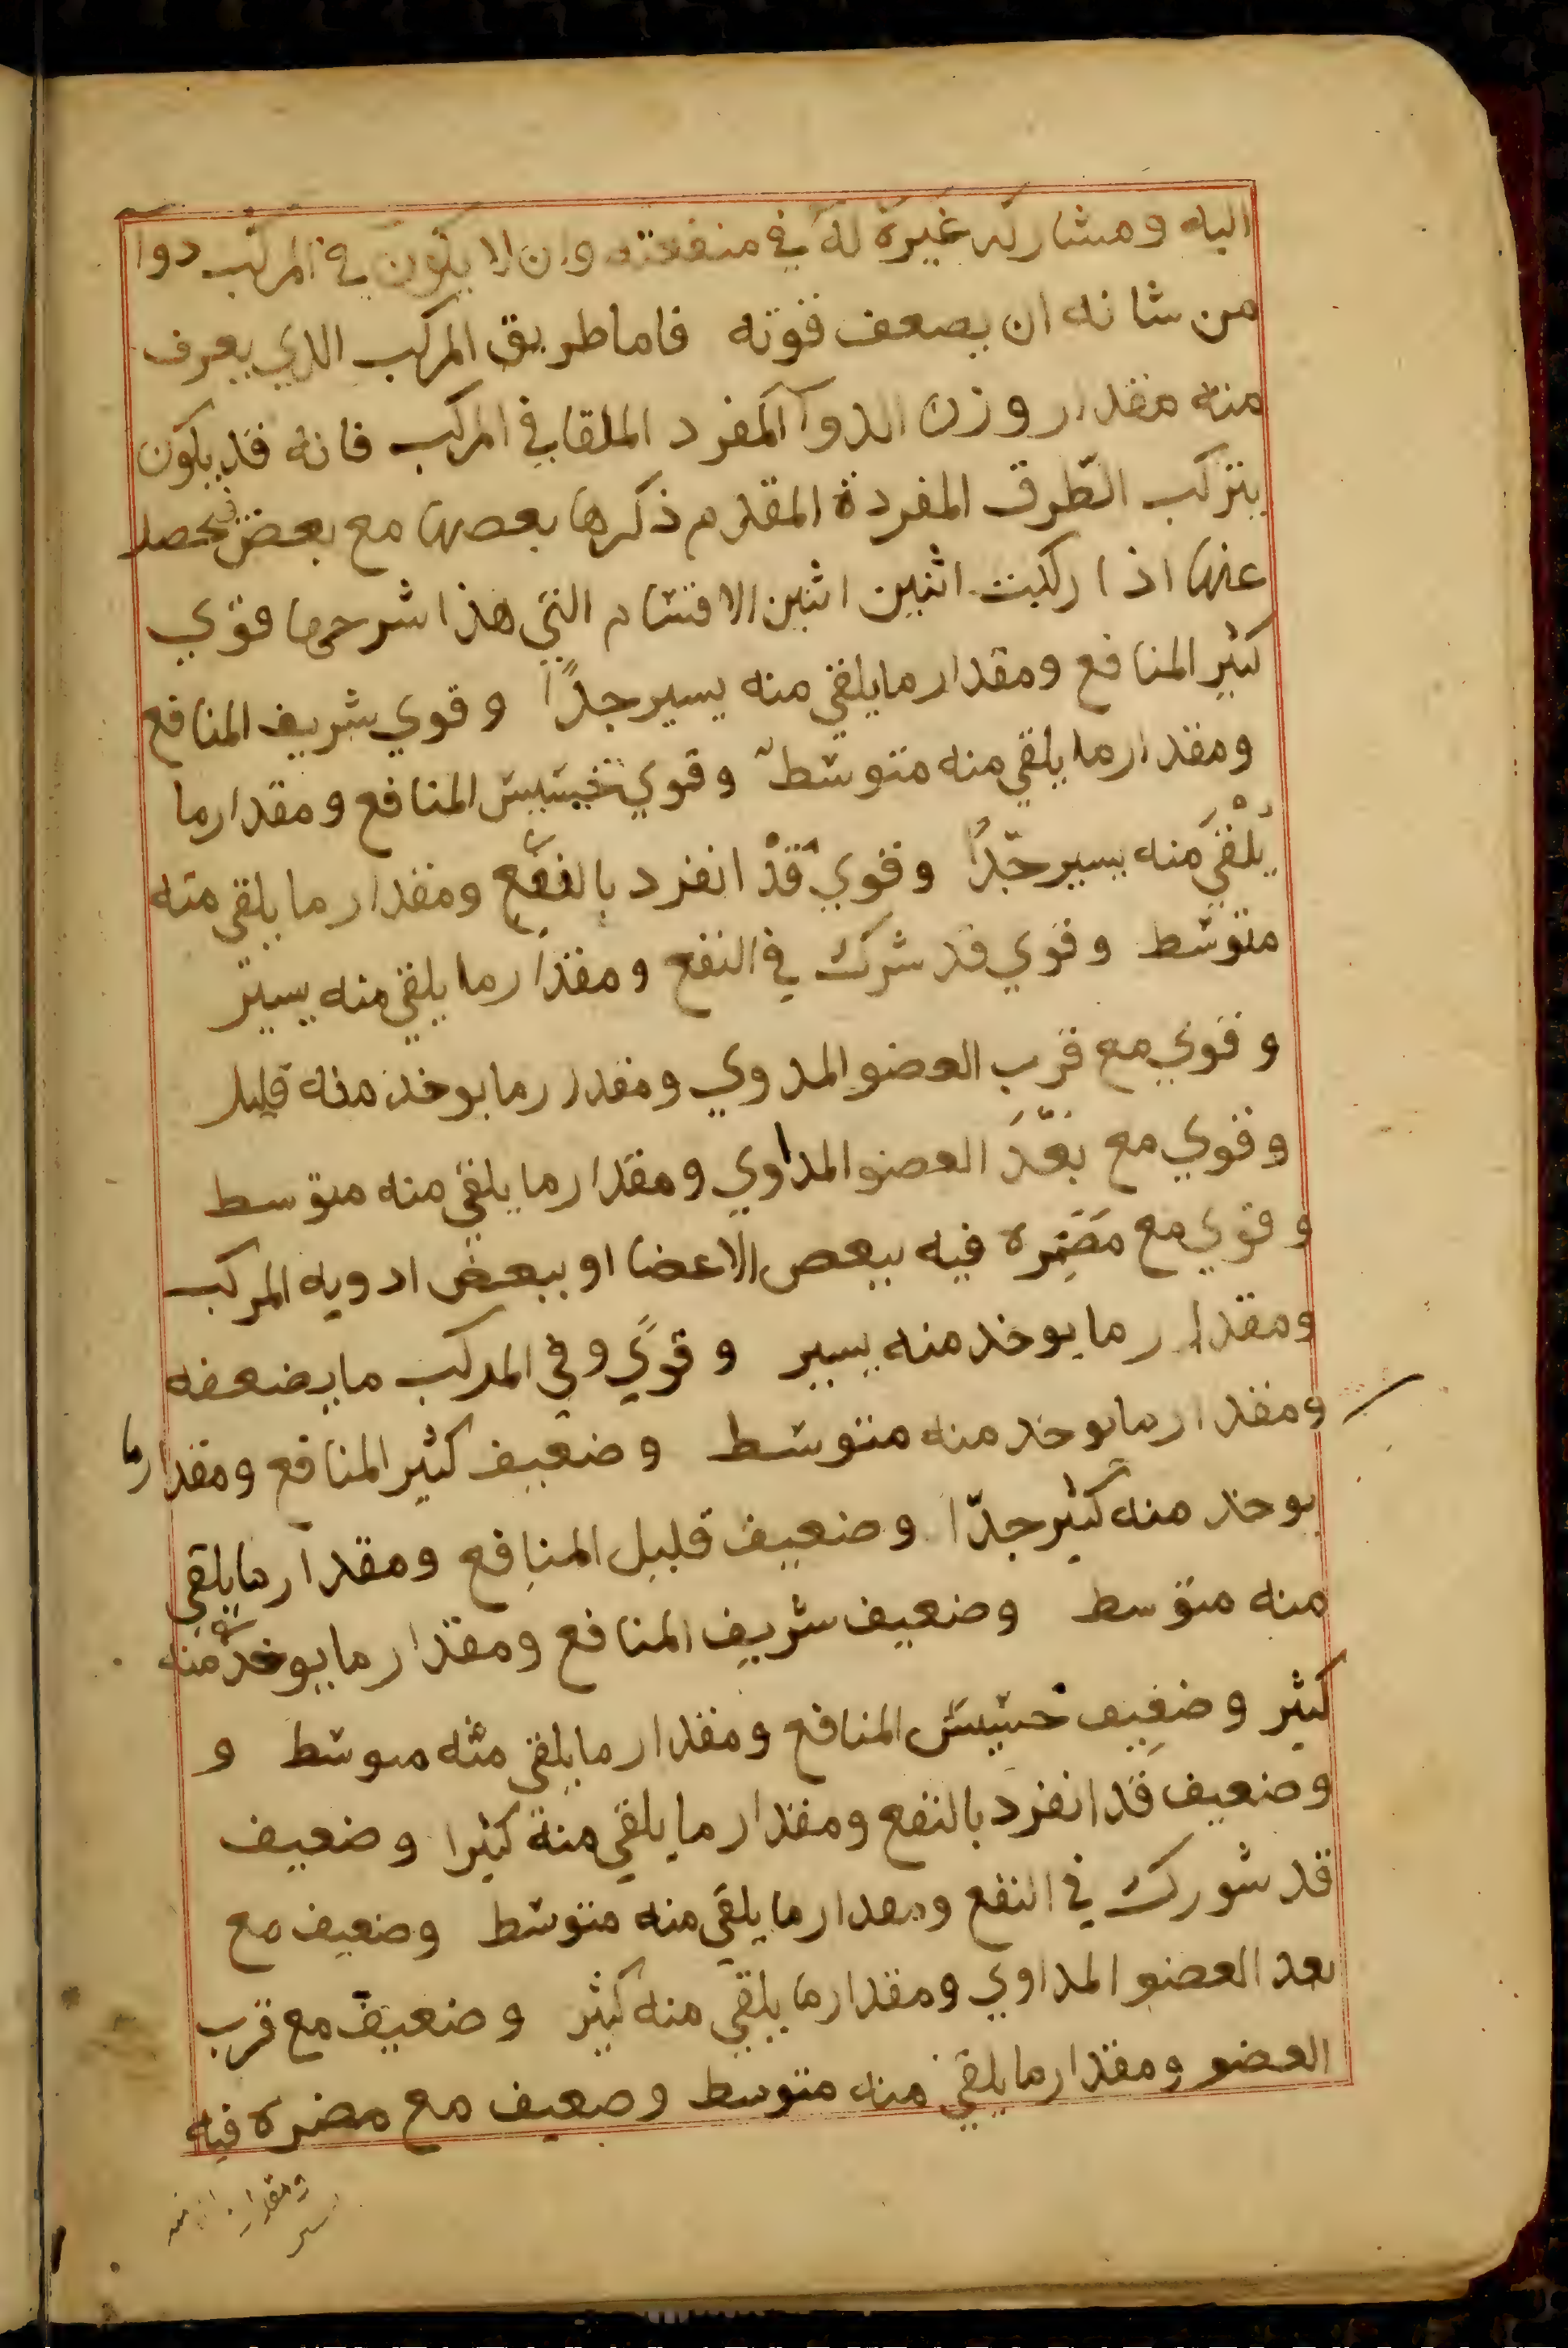 اليه ومشاركه غيره له في منفعته وان لا يكون في المركب دوا
من شانه ان يضعف قوته فاما طريق المركب الذي يعرف
منه مقدار وزن الدوآ المفرد الملقا في المركب فانه قد يكون
بتركب الطّرق المفردة المقدم ذكرها بعضها مع بعض فيحصل
عنها اذا ركبت اثنين اثنين الاقسام التي هذا شرحها قوي
كثير المنافع ومقدار ما يلقي منه يسير جدًا وقوي شريف المنافع
ومقدار ما يلقي منه متوسط وقوي خسيس المنافع ومقدار ما
يُلْقَي منه يسير جدًا وقوي قدْ انفرد بالنفع ومقدار ما يلقي منه
متوسط وقوي قد شرك في النفع ومقدار ما يلقي منه يسير
وقوي مع قرب العضو المدوي ومقدار ما يوخذ منه قليل
وقوي مع بعد العضو المداوي ومقدار ما يلقي منه متوسط
وقوي مع مضره فيه ببعض الاعضا او ببعض ادويه المركب
ومقدار ما يوخد منه يسير وقوي وفي المركب ما يضعفه
ومقدار ما يوخد منه متوسط وضعيف كثير المنافع ومقدار ما
يوخد منه كثير جدّا وضعيف قليل المنافع ومقدار ما يلقي
منه متوسط وضعيف شريف المنافع ومقدار ما يوخد منه
كثير وضعيف خسيس المنافع ومقدار ما يلقي منه متوسط و
وضعيف قد انفرد بالنفع ومقدار ما يلقي منه كثيرا وضعيف
قد شورك في النفع ومقدار ما يلقي منه متوسط وضعيف مع
بعد العضو المداوي ومقدار ما يلقي منه كثير وضعيف مع قرب
العضو ومقدار ما يلقي منه متوسط وضعيف مع مضره فيه
ومقدار